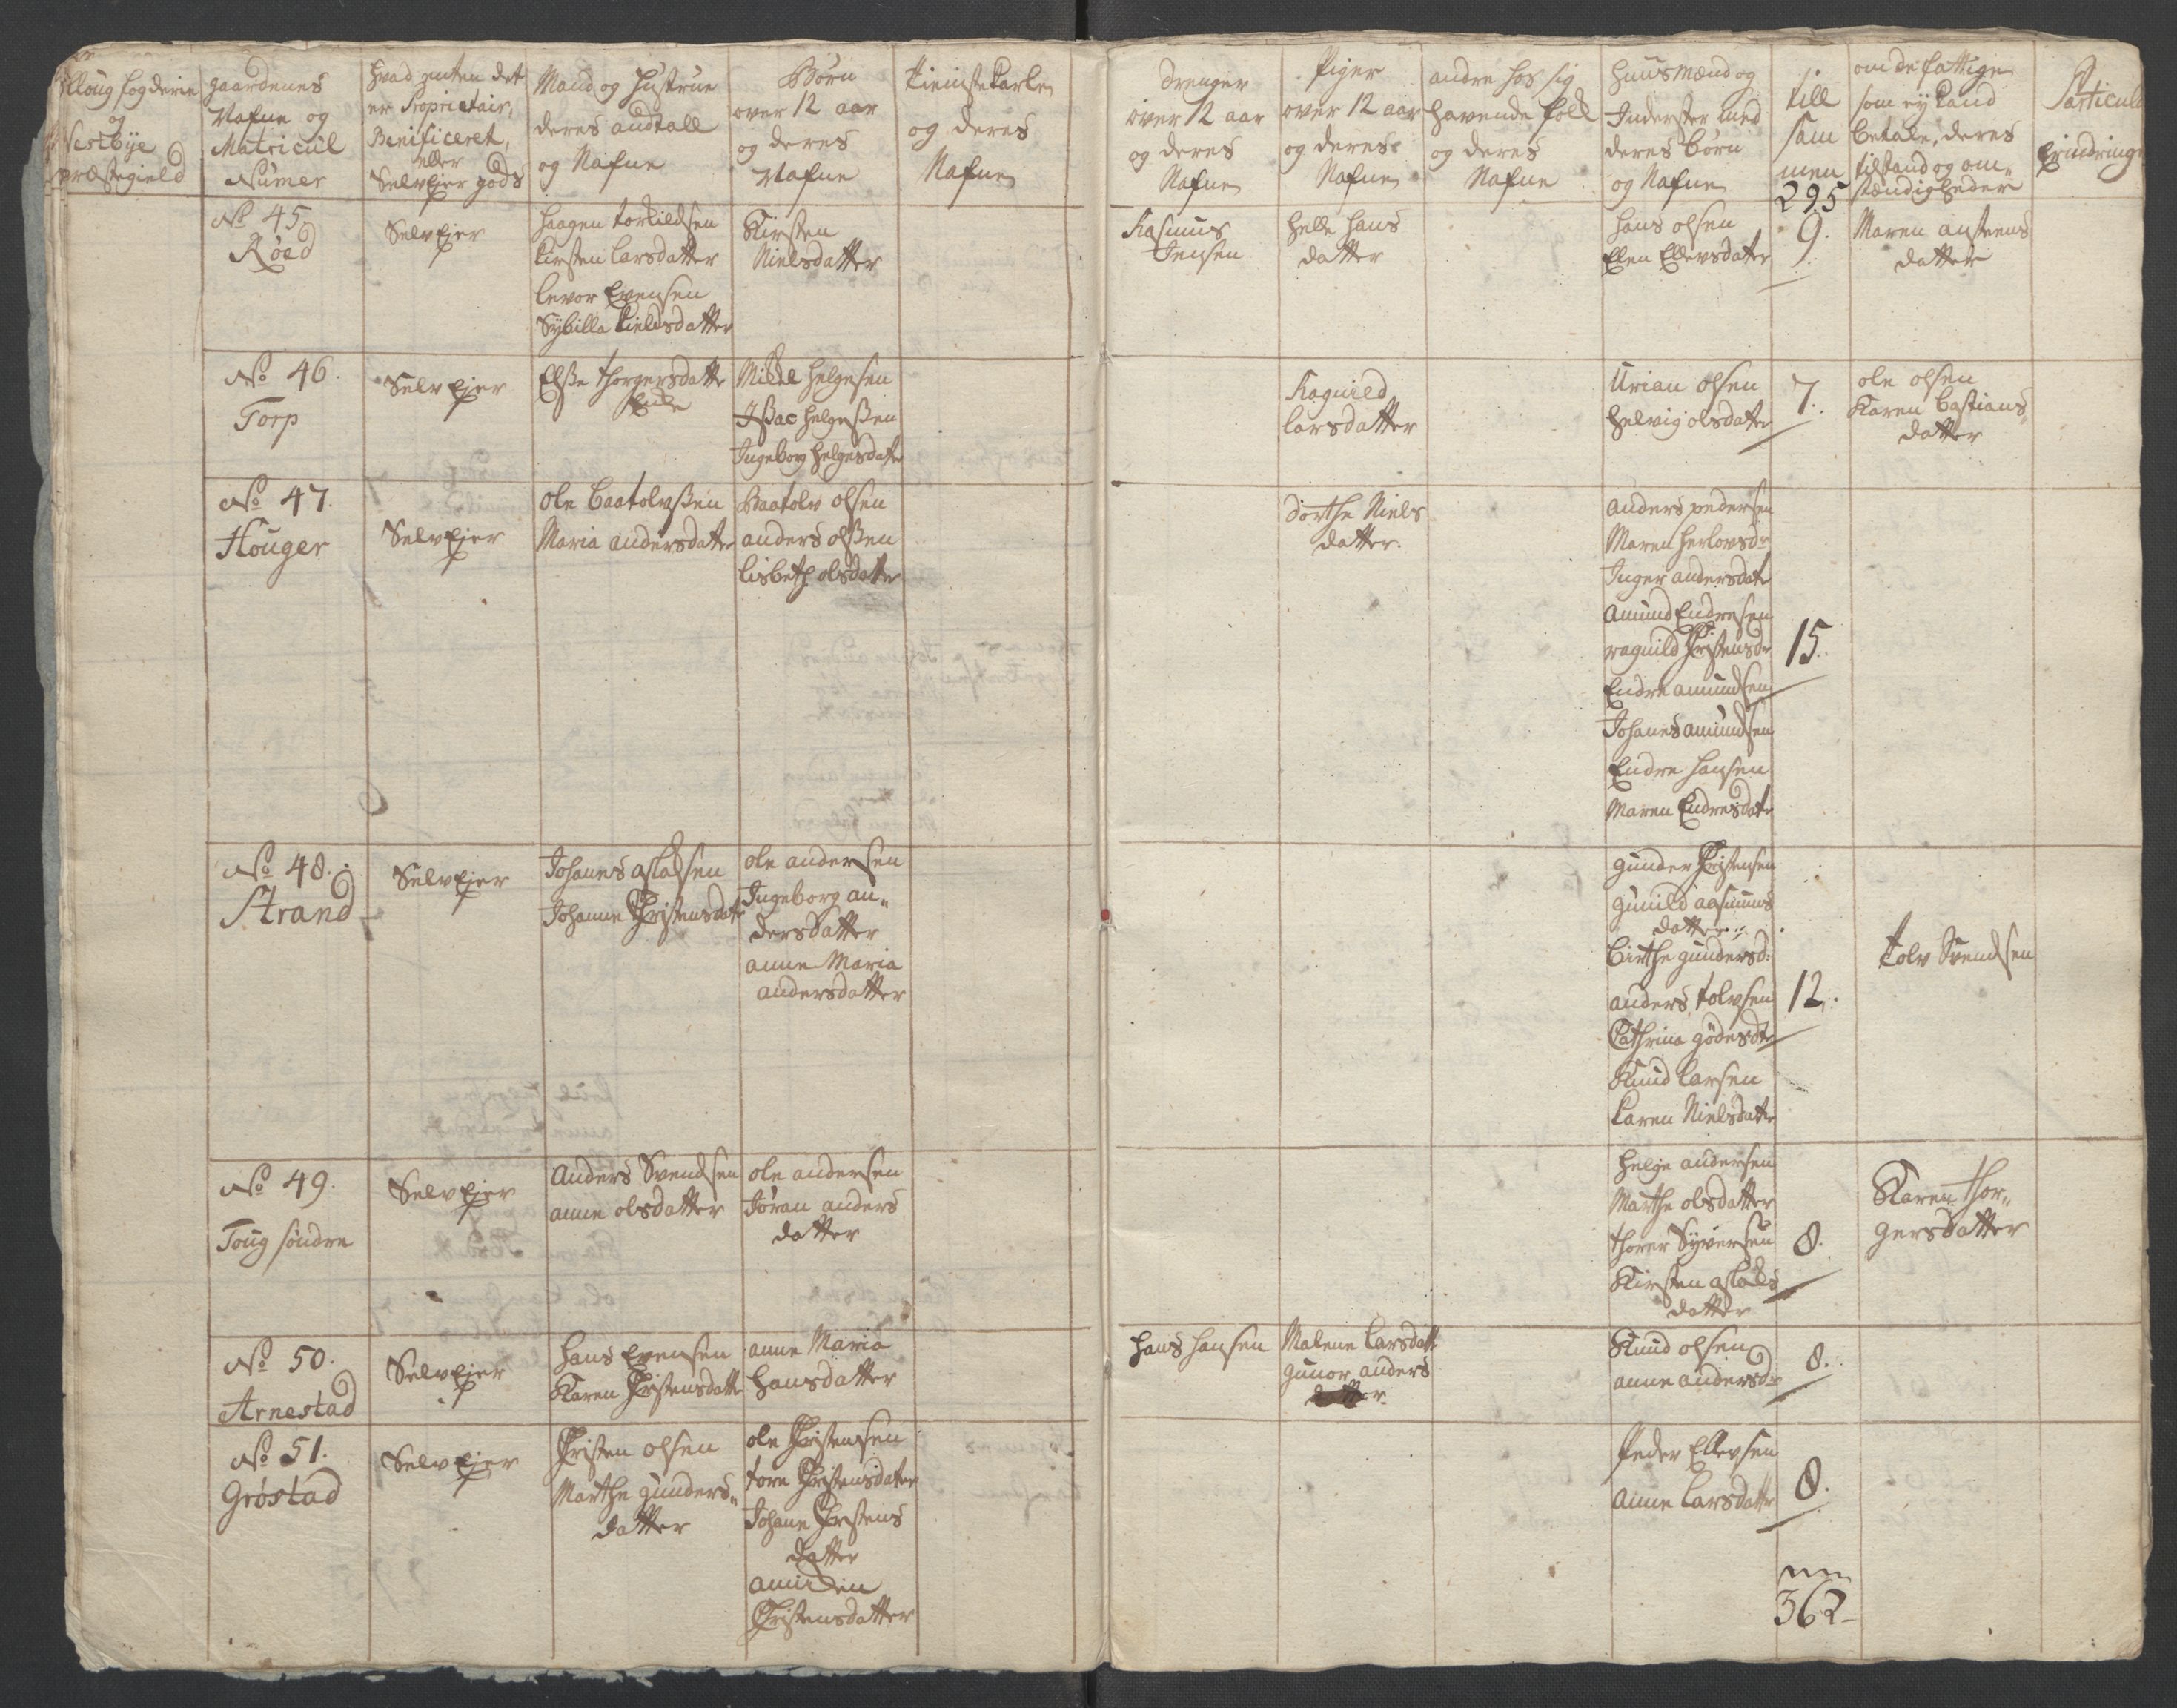 Folloug fogderie
og
Vestbye
præstegield
gaardenes
Nafne og
Matricul
Numer
Hvad enten det
er Proprietair,
Benificeret,
eller
Selvejer gods
Mand og Hustrue
deres andtall
og Nafne
Børn
over 12 aar
og deres
Nafne
Tienistekarle
og deres
Nafne
Drenger
over 12 aar
og deres
Nafne
Piger
over 12 aar
og deres
Nafne
andre hos sig
havende folk
og deres
Nafne
Huusmænd og
Inderster med
deres børn
og Nafne
till
sam
men
295
om de fattige
som ej kand
betale, deres
tilstand og om„
stændigheder
Particul
Erindringe
No 45
Røed
Selvejer
Haagen torkildsen
Kirsten larsdatter
levor Evensen
Sybilla Kieldsdatter
Kirsten
Nielsdatter
Rasmus
Jensen
Helle Hans
datter
Hans olsen
Elen Ellevsdater
9.
Maren anstens
datter
No 46.
Torp
Selvejer
Elsse thorgersdatter
Enke
Mikkel Helgesen
Issac Helgessen
Ingeborg Helgesdater
Ragnild
larsdatter
Urian olsen
Helvig olsdater
7.
ole olsen
Karen bastians
datter
No 47.
Houger
Selvejer
ole baatolvssen
Maria andersdater
Baatolv olsen
anders olssen
lisbeth olsdatter
dorthe Niels
datter.
anders pedersen
Maren Herlovsdr
Inger andersdatr
Amund Endresen
ragnild Christensdr
Endre amundsen
Johanes amundsen
Endre Hansen
Maren Endresdatr
15.
No 48.
Strand
Selvejer
Johanes aslaksen
Johanne Christensdatr
ole andersen
Ingeborg an„
dersdatter
anne Maria
andersdatter
gunder Christensen
gunild aasmunds
datter
birthe gundersd:
anders tolvsen
Cathrina gødesdtr
Knud larsen
Karen Nielsdatr
12.
tolv Svendsen
No 49.
Toug søndre
Selvejer
Anders Svendsen
anne olsdatter
ole andersen
Jøran anders
datter
Helge andersen
Marthe olsdatter
thorer Syversen
Kirsten aslaks
datter
8.
Karen thor„
gersdatter
No 50.
Arnestad
Selvejer
Hans Evensen
Karen Christensdatter
anne Maria
Hansdatter
Hans Hansen
Malene larsdatt
gunor anders
datter
Knud olsen
anne andersdr
8.
No 51.
Grøstad
Selvejer
Christen olsen
Marthe gunders„
datter
ole Christensen
tore Christensdater
Johane Christens
datter
Christensdatter
Peder Ellevsen
Anne larsdatter
8.
362